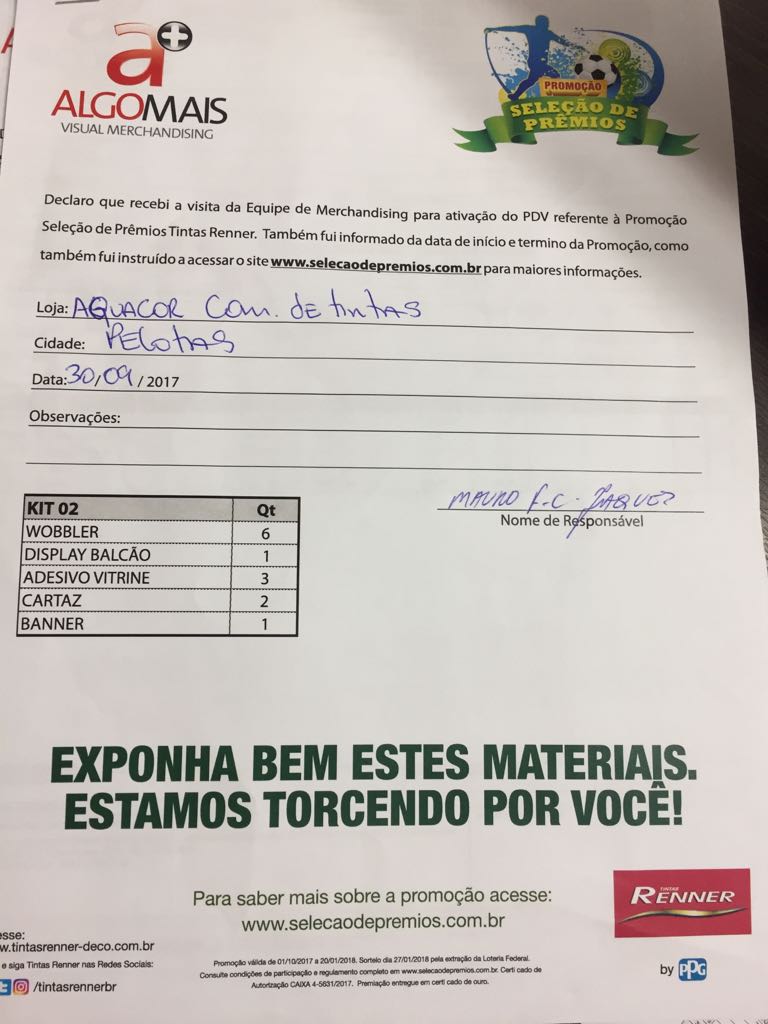 a+
ALGOMAIS
VISUAL MERCHANDISING
PROMOÇÃO
SELEÇÃO DE
PRÊMIOS
Declaro que recebi a visita da Equipe de Merchandising para ativação do PDV referente à Promoção
Seleção de Prêmios Tintas Renner. Também fui informado da data de início e termino da Promoção, como
também fui instruído a acessar o site www.selecaodepremios.com.br para maiores informações.
Loja: AQUACOR COM. DE TINTAS
Cidade: PELOTAS
Data: 30/09/2017
Observações:
MAURO F.C. JAQUEZ
Nome de Responsável
KIT 02 Qt
WOBBLER 6
DISPLAY BALCÃO 1
ADESIVO VITRINE 3
CARTAZ 2
BANNER 1
EXPONHA BEM ESTES MATERIAIS.
ESTAMOS TORCENDO POR VOCÊ!
Para saber mais sobre a promoção acesse:
www.selecaodepremios.com.br
TINTAS
RENNER
by PPG
esse:
w.tintasrenner-deco.com.br
e siga Tintas Renner nas Redes Sociais:
/tintasrennerbr
Promoção válida de 01/10/2017 a 20/01/2018. Sorteio dia 27/01/2018 pela extração da Loteria Federal.
Consulte condições de participação e regulamento completo em www.selecaodepremios.com.br. Certi cado de
Autorização CAIXA 4-5631/2017. Premiação entregue em certi cado de ouro.